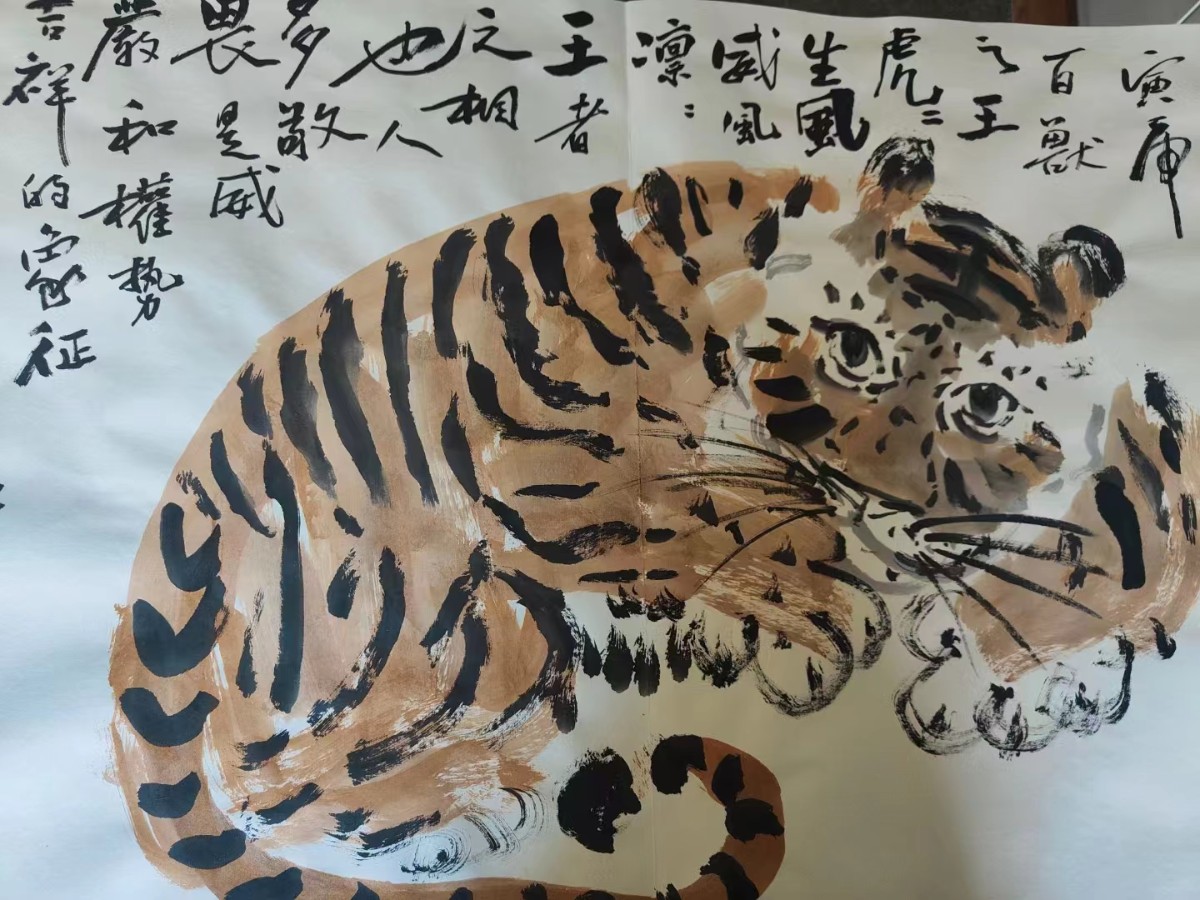 寅虎
百獸
之王
虎〻
生風
威風
凜〻
王者
之相
也人
多敬
畏是威
嚴和權勢
吉祥的象征